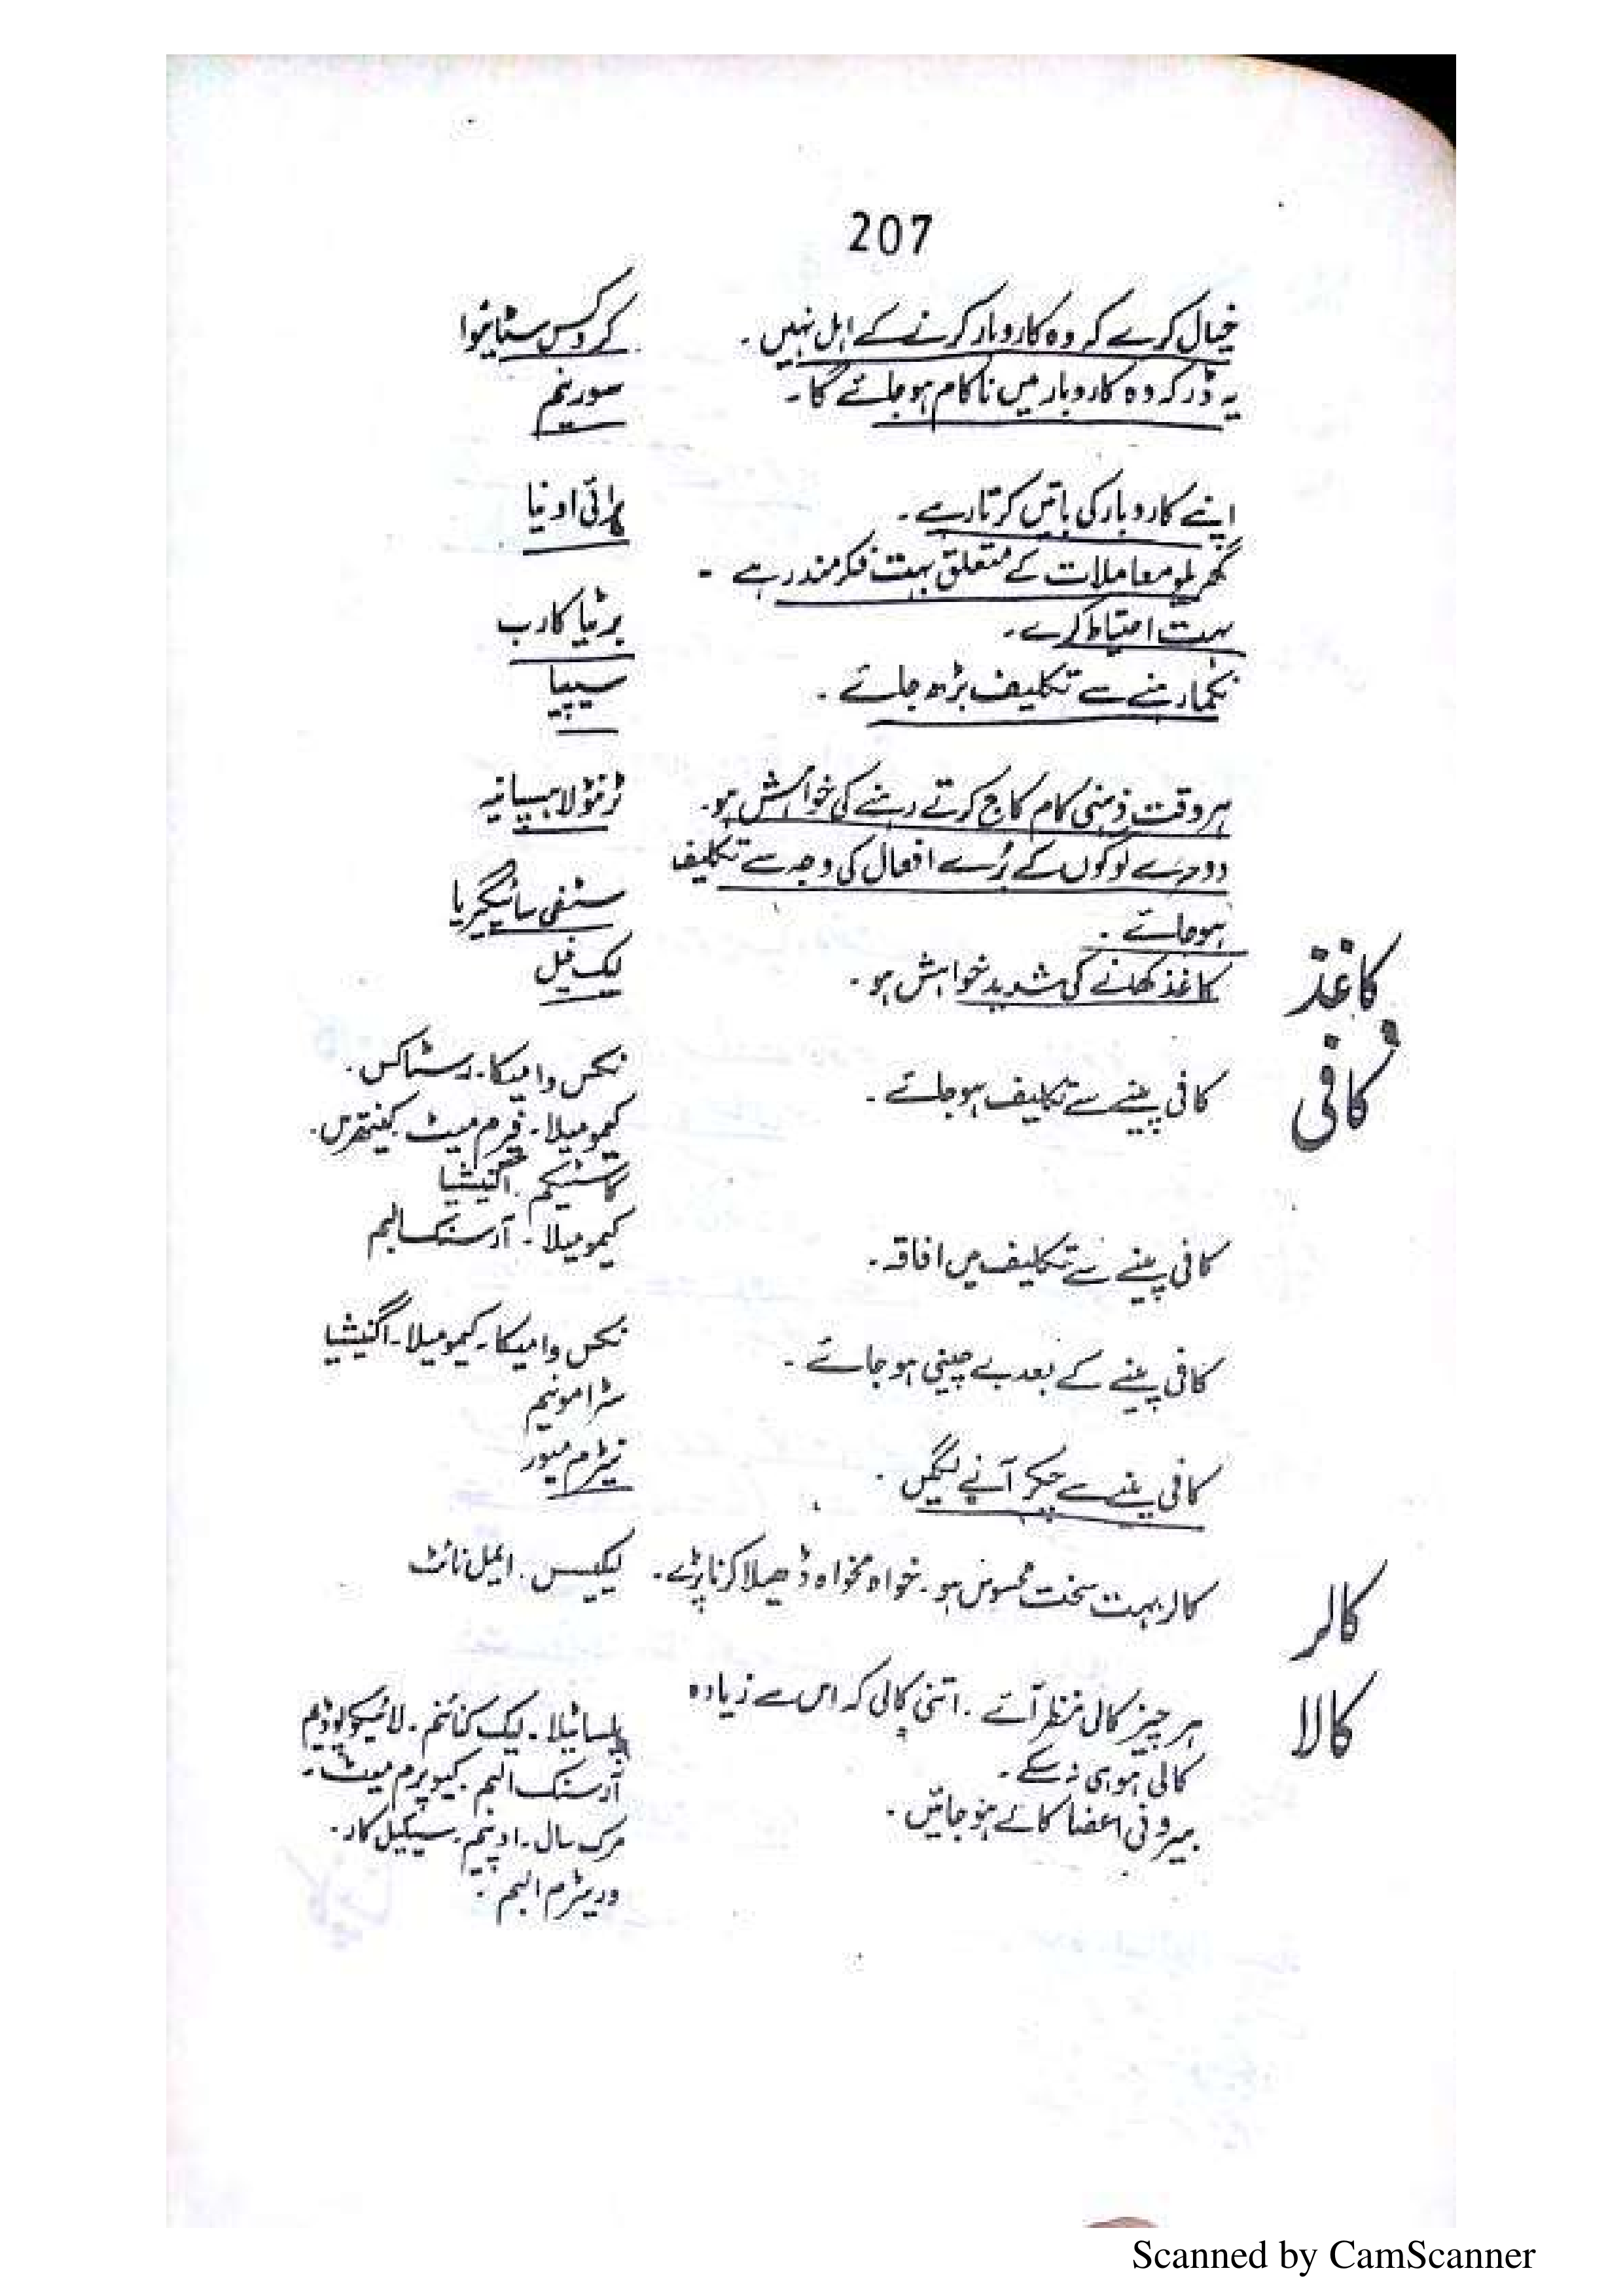 207
خیال کرے کہ وہ کاروبار کرنے کے اہل نہیں ۔ کروکس سٹائیوا
یہ ڈر کہ وہ کاروبار میں ناکام ہو جائے گا ۔ سورینم
اپنے کاروبار کی باتیں کرتا رہے ۔ برائی اونیا
گھریلو معاملات کے متعلق بہت فکر مند رہے ۔
بہت احتیاط کرے ۔ برٹیا کارب
نکما رہنے سے تکلیف بڑھ جائے ۔ سیپیا
ہر وقت ذہنی کام کاج کرتے رہنے کی خواہش ہو ۔ ٹرنٹولا ہسپانیہ
دوسرے لوگوں کے بُرے افعال کی وجہ سے تکلیف
ہو جائے ۔ سٹفی سائیگیریا
کاغذ کاغذ کھانے کی شدید خواہش ہو ۔ لیک فیل
کافی کافی پینے سے تکلیف ہو جائے ۔ نکس وامیکا ۔ رسٹاکس ۔
کیمومیلا ۔ فیرم میٹ کینتھرس ۔
کاسٹیکم ۔ اگنیشیا
کافی پینے سے تکلیف میں افاقہ ۔ کیمومیلا ۔ آرسنک البم
کافی پینے کے بعد بے چینی ہو جائے ۔ نکس وامیکا ۔ کیمومیلا ۔ اگنیشیا
سٹرامونیم
کافی پینے سے چکر آنے لگیں ۔ نیٹرم میور
کالر کالر بہت سخت محسوس ہو ۔ خواہ مخواہ ڈھیلا کرنا پڑے ۔ لیکیسس ۔ ایمل نائٹ
کالا ہر چیز کالی نظر آئے ۔ اتنی کالی کہ اس سے زیادہ پلساٹیلا ۔ لیک کنائنم ۔ لائیکوپوڈیم
کالی ہو ہی نہ سکے ۔ آرسنک البم ۔ کیوپرم میٹ ۔
بیرونی اعضا کالے ہو جائیں ۔ مرک سال ۔ اوپیم ۔ سیکیل کار ۔
وریٹرم البم ۔
Scanned by CamScanner